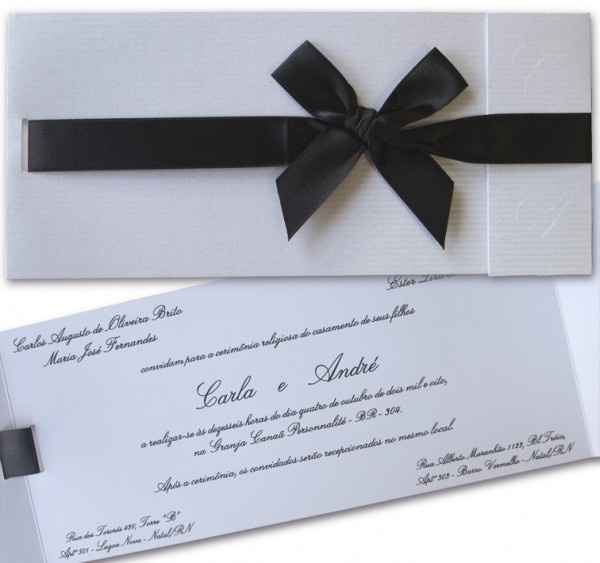 Carlos Augusto de Oliveira Brito
Maria José Fernandes
Ester
convidam para a cerimônia religiosa do casamento de seus filhos
Carla e André
a realizar-se às dezesseis horas do dia quatro de outubro de dois mil e oito,
na Granja Canaã Personnalité - BR - 304.
Após a cerimônia, os convidados serão recepcionados no mesmo local.
Rua dos Tororós 451, Torre "B"
Aptº 501 - Lagoa Nova - Natal/RN
Rua Alberto Maranhão 1129, Bl.
Aptº 303 - Barro Vermelho - Natal/RN